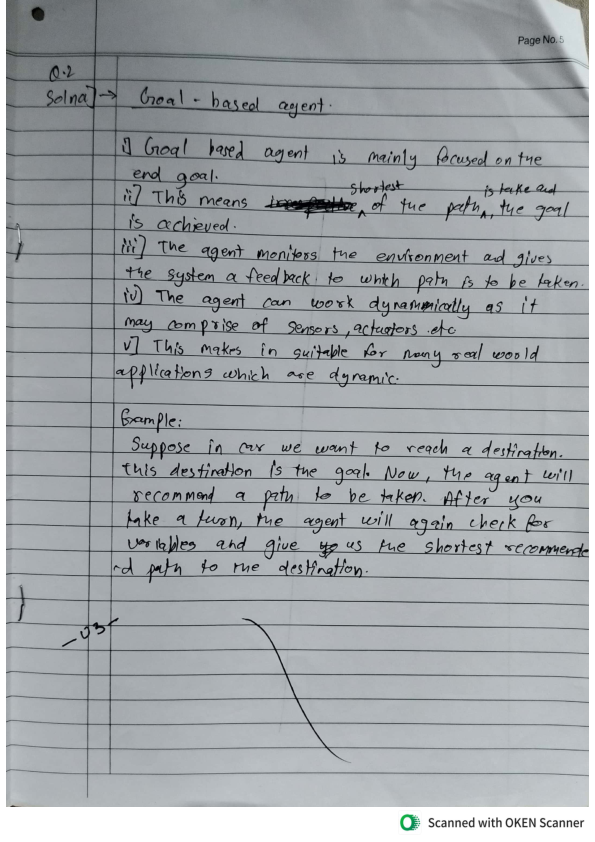 Page No. 5
Q.2
Solna] → Goal - based agent.
i] Goal based agent is mainly focused on the
end goal.
ii] This means shortest of the path is take and, the goal
is achieved.
iii] The agent monitors the environment and gives
the system a feedback to which path is to be taken.
iv) The agent can work dynammically as it
may comprise of sensors, actuators etc
v] This makes in suitable for many real world
applications which are dynamic.
Example:
Suppose in car we want to reach a destination.
this destination is the goal. Now, the agent will
recommend a path to be taken. After you
take a turn, the agent will again check for
variables and give us the shortest recommende
-d path to the destination.
-03-
Scanned with OKEN Scanner